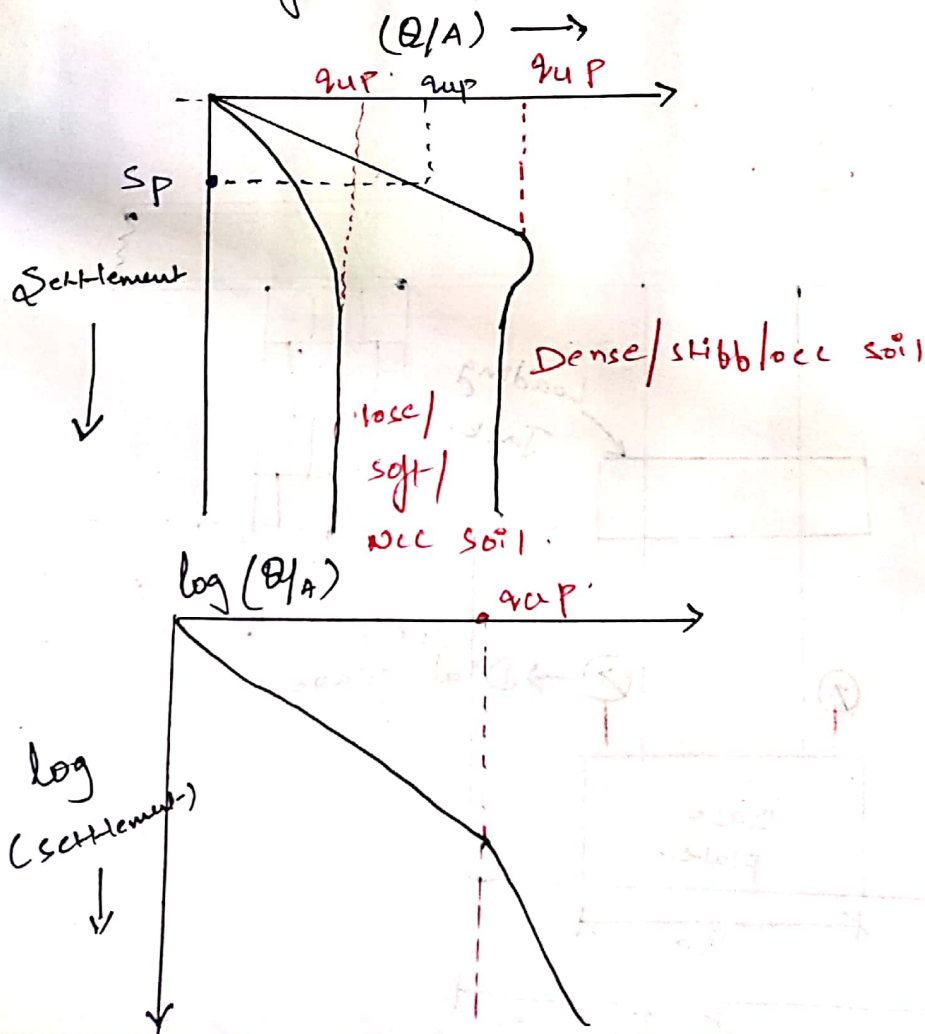 (Q/A) →
qup. qup qup
Sp
Settlement
Dense/stibb/occ soil
lose/
soft/
NCC soil.
log (Q/A)
qup.
log
(settlement)